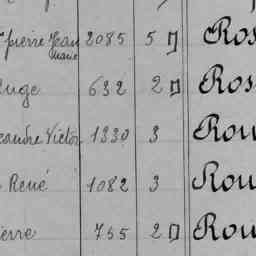 pierre Jean Marie 2085 5 Ros
uge 632 2 Ros
eandre Victor 1330 3 Rou
René 1082 3 Rou
ierre 755 2 Rou